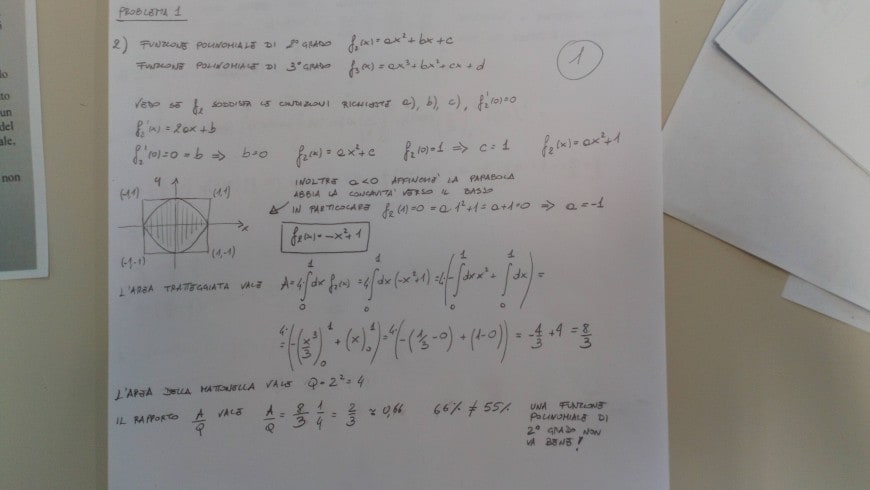 PROBLEMA 1
1
2) FUNZIONE POLINOMIALE DI 2º GRADO f₂(x)=ax²+bx+c
FUNZIONE POLINOMIALE DI 3º GRADO f₃(x)=ax³+bx²+cx+d
VEDO SE f₂ SODDISFA LE CONDIZIONI RICHIESTE a), b), c), f₂'(0)=0
f₂'(x)=2ax+b
f₂'(0)=0=b ⇒ b=0 f₂(x)=ax²+c f₂(0)=1 ⇒ c=1 f₂(x)=ax²+1
INOLTRE a<0 AFFINCHÉ LA PARABOLA
ABBIA LA CONCAVITA' VERSO IL BASSO
IN PARTICOLARE f₂(1)=0=a·1²+1=a+1=0 ⇒ a=-1
f₂(x)=-x²+1
(-1,1) (1,1)
x
(-1,-1) (1,-1)
L'AREA TRATTEGGIATA VALE A=4·∫₀¹dx f₂(x)=4∫₀¹dx(-x²+1)=4·(-∫₀¹dx x²+∫₀¹dx)=
=4·(-(x³/3)₀¹+(x)₀¹)=4·(-(1/3-0)+(1-0))=-4/3+4=8/3
L'AREA DELLA MATTONELLA VALE Q=2²=4
IL RAPPORTO A/Q VALE A/Q=8/3 1/4=2/3≈0,66 66% ≠ 55% UNA FUNZIONE
POLINOMIALE DI
2º GRADO NON
VA BENE!
lo
un
del
ale.
non